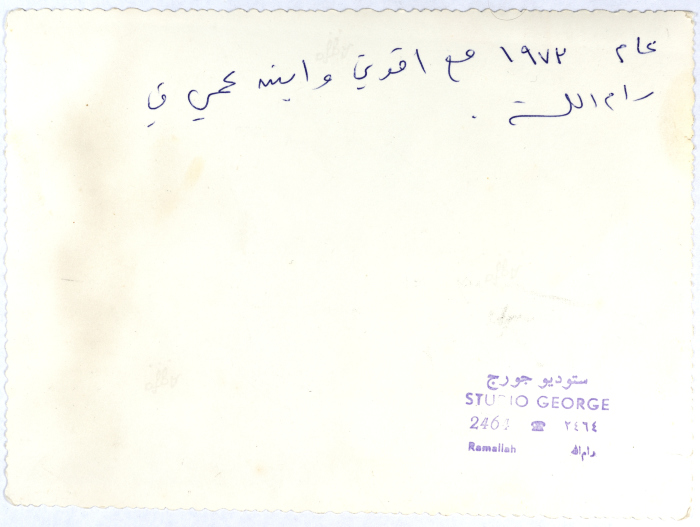 عام ١٩٧٢ مع اخوتي وابنة عمي في
رام الله .
ستوديو جورج
STUDIO GEORGE
2464 ☎ ٢٤٦٤
Ramallah رام الله